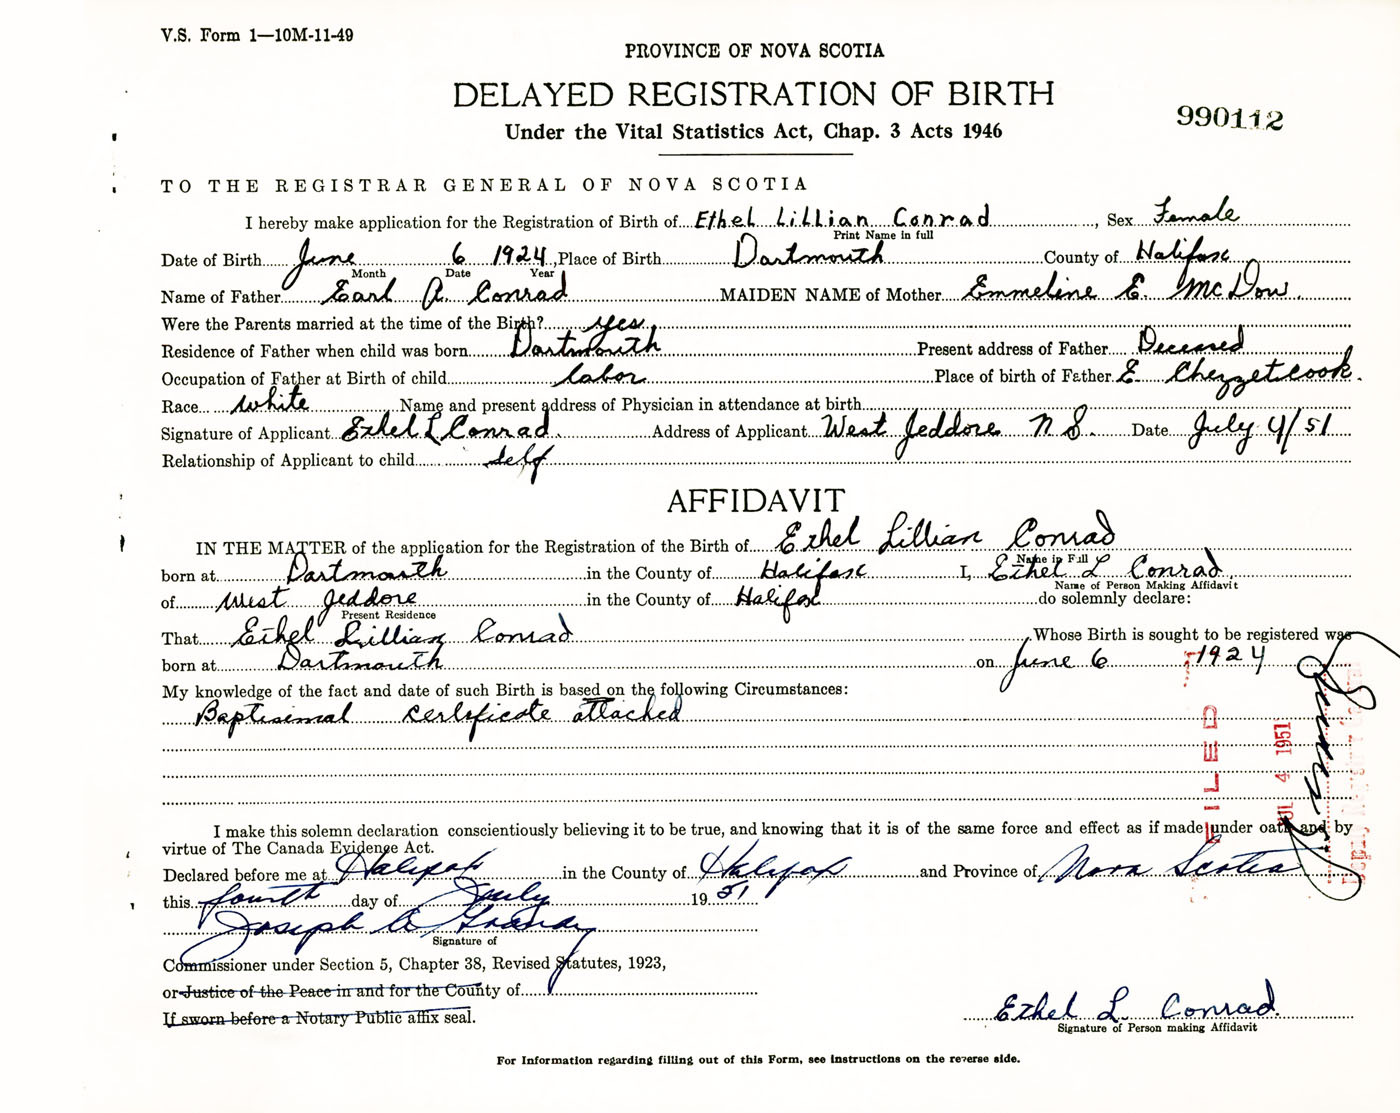 V.S. Form 1—10M-11-49
PROVINCE OF NOVA SCOTIA
DELAYED REGISTRATION OF BIRTH
990112
Under the Vital Statistics Act, Chap. 3 Acts 1946
TO THE REGISTRAR GENERAL OF NOVA SCOTIA
I hereby make application for the Registration of Birth of Ethel Lillian Conrad, Sex Female
Print Name in full
Date of Birth June 6 1924, Place of Birth Dartmouth County of Halifax
Month Date Year
Name of Father Earl A. Conrad MAIDEN NAME of Mother Emmeline E. McDow.
Were the Parents married at the time of the Birth? yes
Residence of Father when child was born Dartmouth Present address of Father Deceased
Occupation of Father at Birth of child labor Place of birth of Father E. Chezzetcook.
Race white Name and present address of Physician in attendance at birth
Signature of Applicant Ethel L Conrad. Address of Applicant West Jeddore N S. Date July 4/51
Relationship of Applicant to child self
AFFIDAVIT
IN THE MATTER of the application for the Registration of the Birth of Ethel Lillian Conrad
Name in Full
born at Dartmouth in the County of Halifax I, Ethel L Conrad,
Name of Person Making Affidavit
of West Jeddore in the County of Halifax do solemnly declare:
Present Residence
That Ethel Lillian Conrad, Whose Birth is sought to be registered was
born at Dartmouth on June 6 1924
My knowledge of the fact and date of such Birth is based on the following Circumstances:
Baptisimal certificate attached
FILED
JUL 4 1951
I make this solemn declaration conscientiously believing it to be true, and knowing that it is of the same force and effect as if made under oath and by
virtue of The Canada Evidence Act.
Declared before me at Halifax in the County of Halifax and Province of Nova Scotia
this fourth day of July 19 51
Joseph A
Signature of
Commissioner under Section 5, Chapter 38, Revised Statutes, 1923,
or Justice of the Peace in and for the County of
If sworn before a Notary Public affix seal.
Ethel L. Conrad.
Signature of Person making Affidavit
For Information regarding filling out of this Form, see instructions on the reverse side.